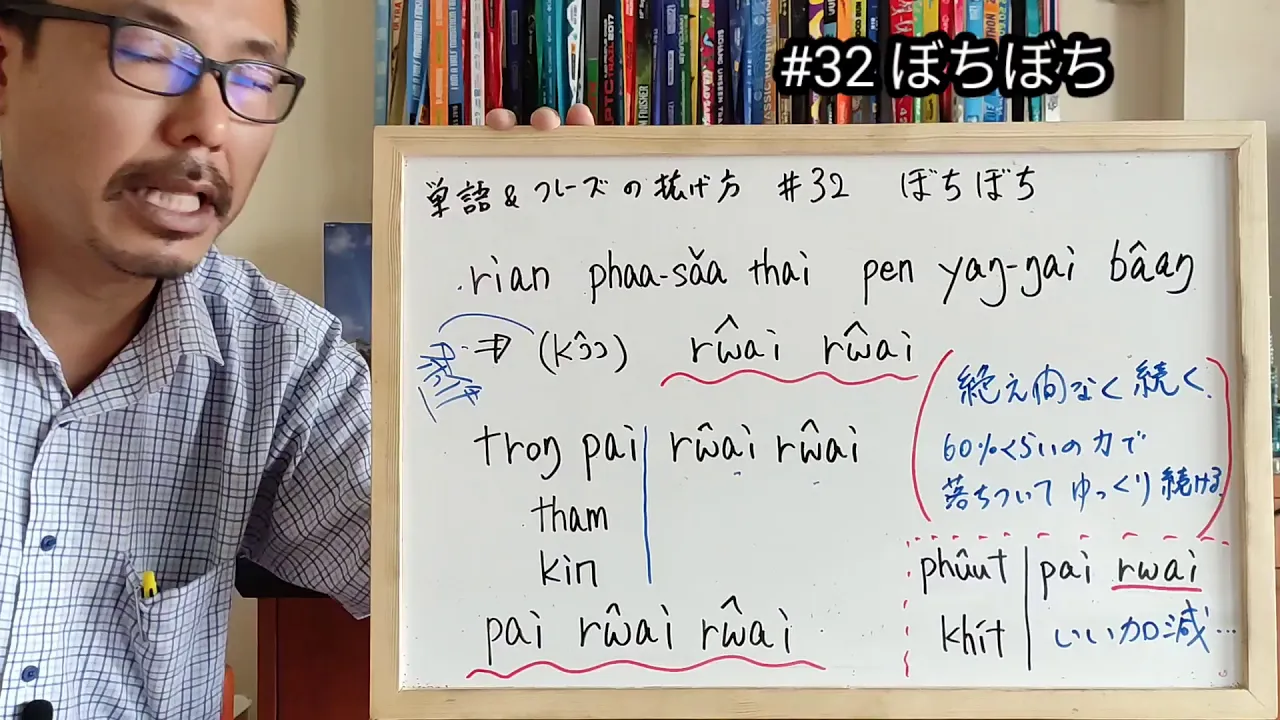 #32 ぼちぼち
単語 & フレーズの拡げ方 #32 ぼちぼち
rian phaa-sǎa thai pen yaŋ-ŋai bâaŋ
⇒ (kɔ̂ɔ) rɯ̂ai rɯ̂ai
絶え間なく続く.
60%くらいの力で
落ちついてゆっくり続ける
troŋ pai rɯ̂ai rɯ̂ai
tham
kin
pai rɯ̂ai rɯ̂ai
phûut pai rɯai
khít いい加減…